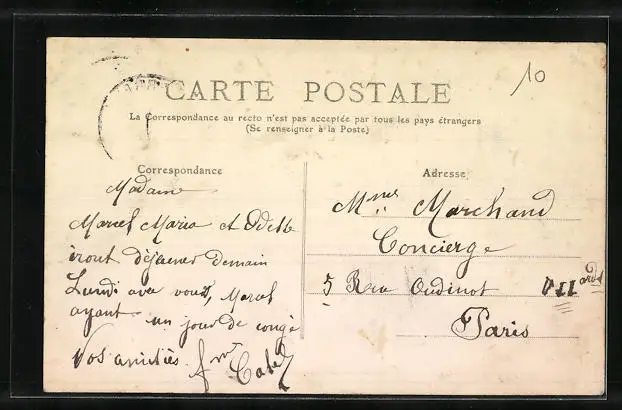 10
CARTE POSTALE
La Correspondance au recto n'est pas acceptée par tous les pays étrangers
(Se renseigner à la Poste)
Correspondance
Madame
Marcel Maria et Odette
iront déjeuner demain
Lundi avec vous, Marcel
ayant un jour de congé
Vos amitiés
Adresse
Marchand
Concierge
5 Rue Oudinot VII
Paris